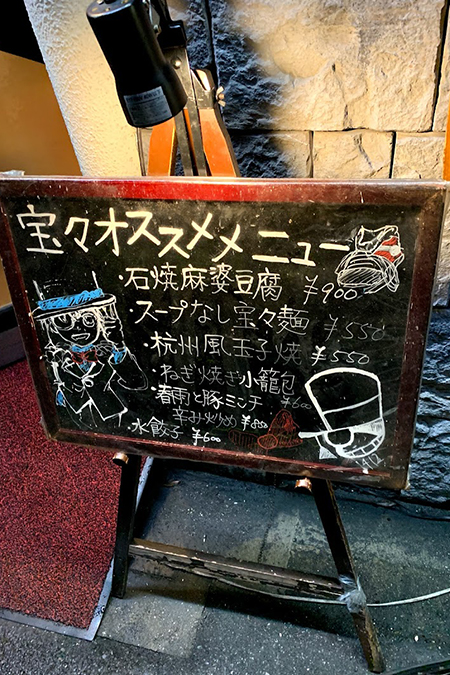 宝々オススメメニュー
・石焼麻婆豆腐 ¥900
・スープなし宝々麺 ¥550
・杭州風玉子焼 ¥550
・ねぎ焼き小籠包 ¥600
・春雨と豚ミンチ
辛み炒め
・水餃子 ¥600